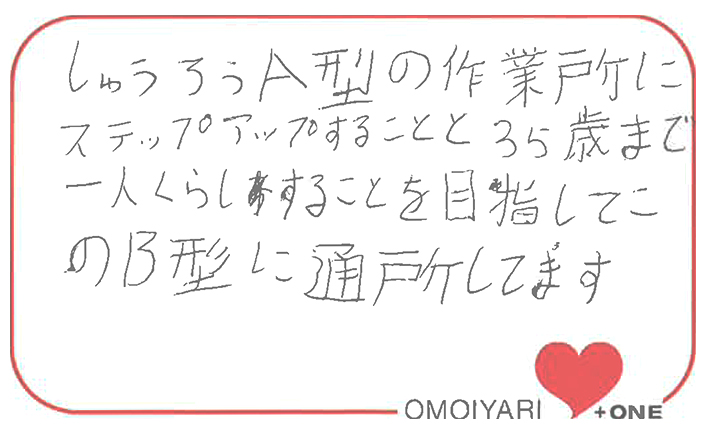 しゅうろうA型の作業所に
ステップアップすることと35歳まで
一人くらしすることを目指してこ
のB型に通所してます
OMOIYARI +ONE